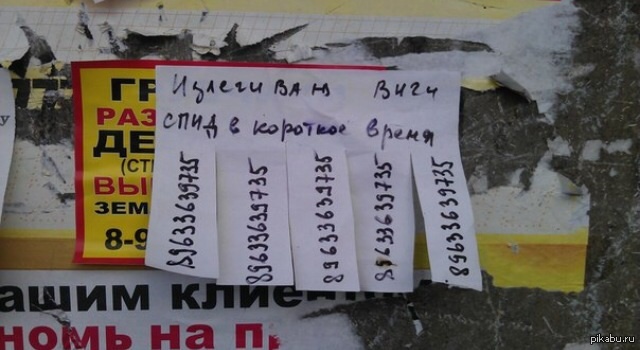 Излегиваю ВИЧ и
СПИД в короткое время
89633639735
89633639735
89633639735
89633639735
89633639735
ГР
РАЗ
ДЕ
(СТ
ВЫ
ЗЕМ
8-9
ашим клиен
номь на п
pikabu.ru